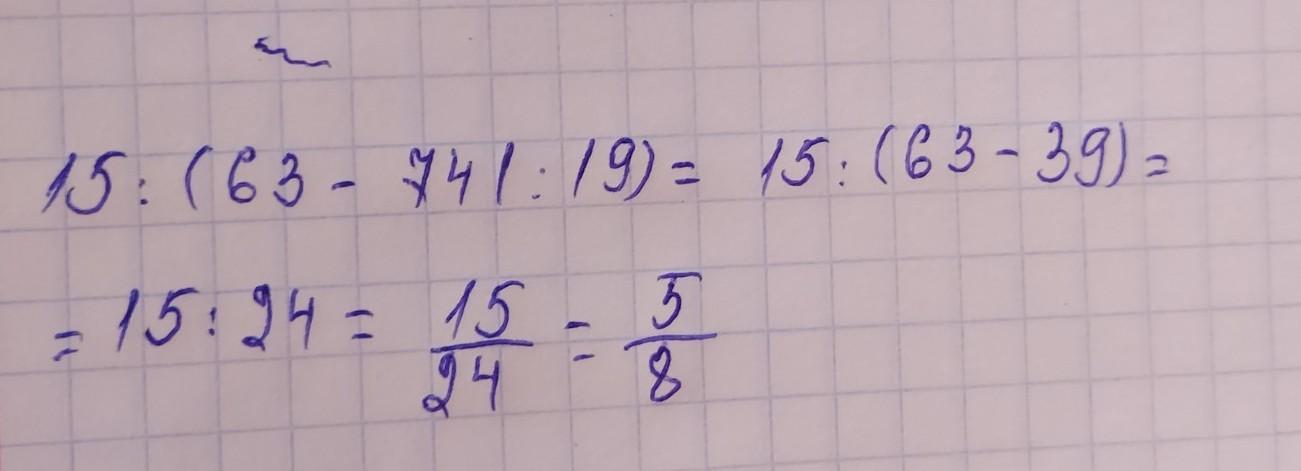 15 : (63 - 741 : 19) = 15 : (63 - 39) =
= 15 : 24 = 15/24 = 5/8